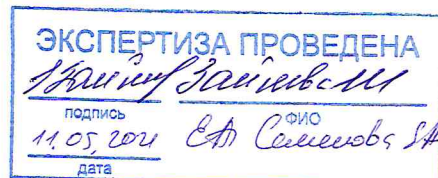 ЭКСПЕРТИЗА ПРОВЕДЕНА
Зайцева
подпись ФИО
11.05.2021 Семенова
дата